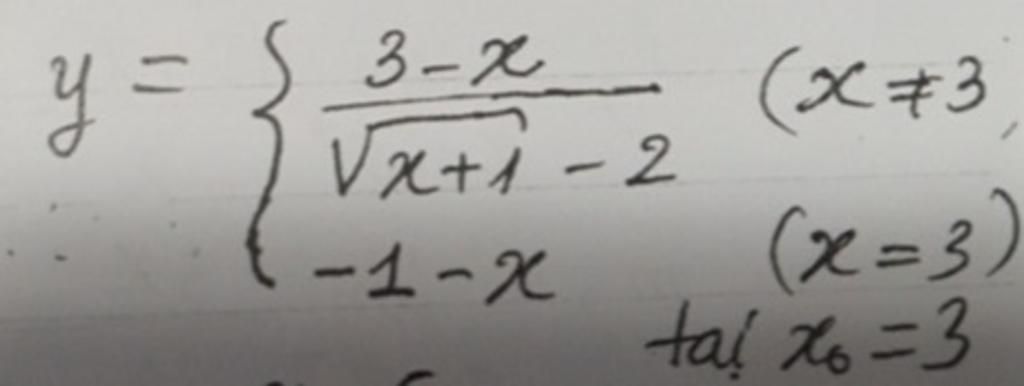 y = { (3 - x) / (√(x+1) - 2) (x ≠ 3)
-1 - x (x = 3)
tại x₀ = 3